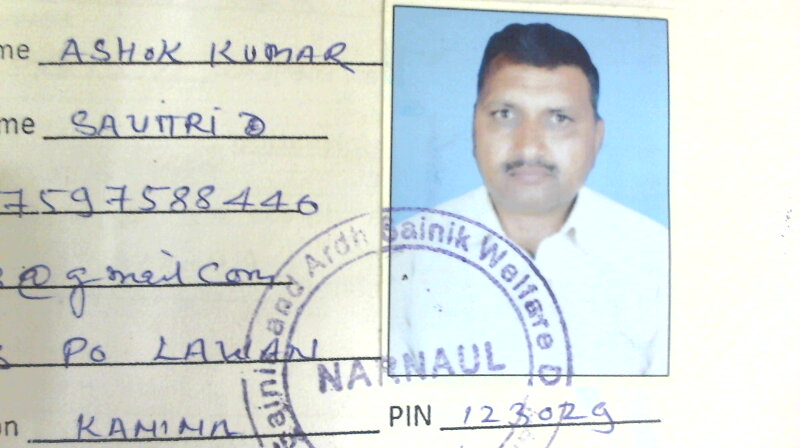 me ASHOK KUMAR
me SAVITRI D
7597588446
@gmail com
PO LAWAN
n KANINA PIN 123029
Sainik and Ardh Sainik Welfare O
NARNAUL